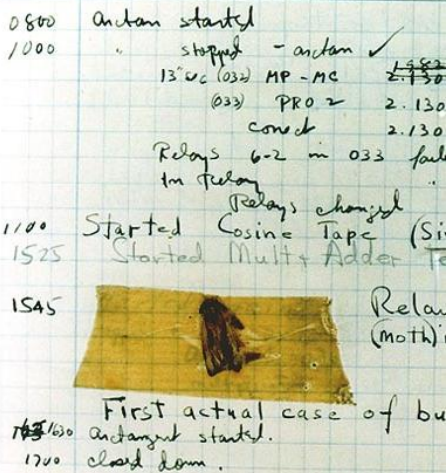 0800 arctan started
1000 " stopped - arctan ✓
13" uc (032) MP - MC 2.130
(033) PRO 2 2.130
conect 2.130
Relays 6-2 in 033 fail
In Relay
Relays changed
1100 Started Cosine Tape (Si
1525 Started Mult + Adder Te
1545 Relay
(moth) i
First actual case of bu
1630 arctangent started.
1700 closed down.